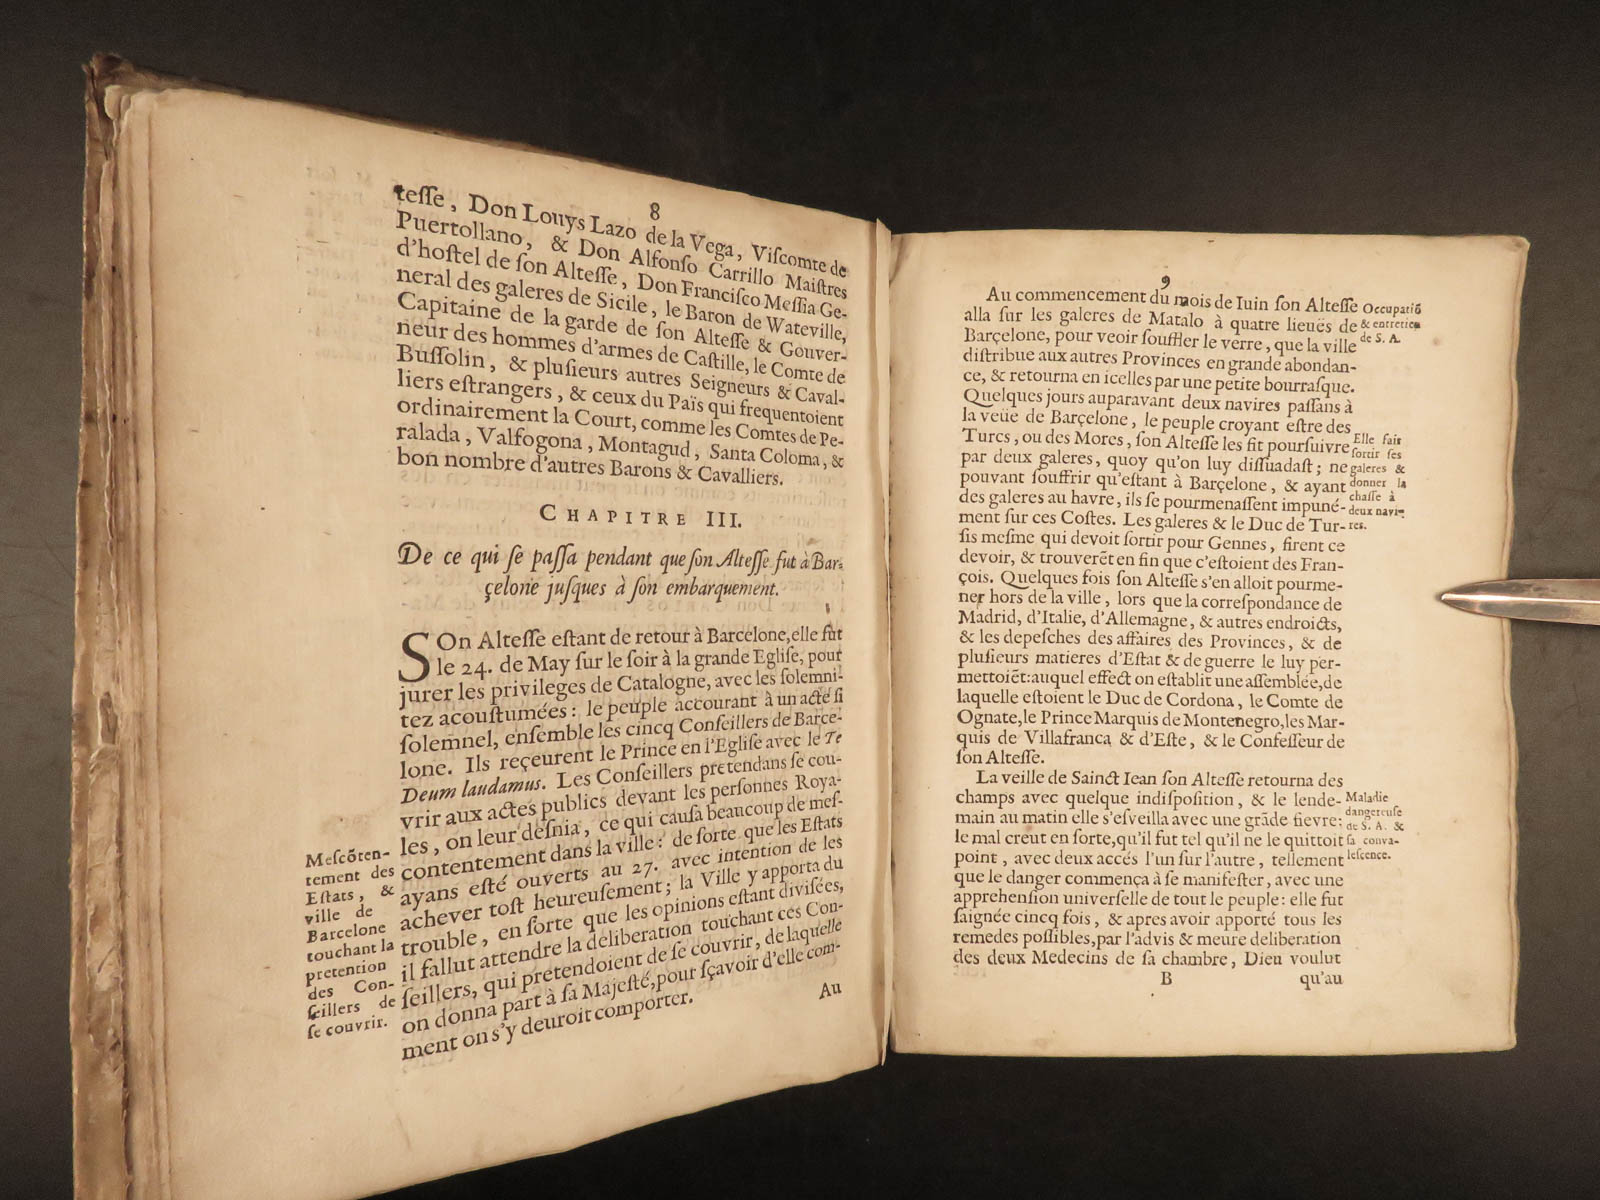 8
teſſe, Don Louys Lazo de la Vega, Viſcomte de
Puertollano, & Don Alfonſo Carrillo Maiſtres
d'hoſtel de ſon Alteſſe, Don Franciſco Meſſia Ge-
neral des galeres de Sicile, le Baron de Wateville,
Capitaine de la garde de ſon Alteſſe & Gouver-
neur des hommes d'armes de Caſtille, le Comte de
Buſſolin, & pluſieurs autres Seigneurs & Caval-
liers eſtrangers, & ceux du Païs qui frequentoient
ordinairement la Court, comme les Comtes de Pe-
ralada, Valfogona, Montagud, Santa Coloma, &
bon nombre d'autres Barons & Cavalliers.
CHAPITRE III.
De ce qui ſe paſſa pendant que ſon Alteſſe fut à Bar-
çelone juſques à ſon embarquement.
SOn Alteſſe eſtant de retour à Barcelone, elle fut
le 24. de May ſur le ſoir à la grande Egliſe, pour
jurer les privileges de Catalogne, avec les ſolemni-
tez acouſtumées: le peuple accourant à un acte ſi
ſolemnel, enſemble les cincq Conſeillers de Barce-
lone. Ils reçeurent le Prince en l'Egliſe avec le Te
Deum laudamus. Les Conſeillers pretendans ſe cou-
vrir aux actes publics devant les perſonnes Roya-
les, on leur deſnia, ce qui cauſa beaucoup de meſ-
contentement dans la ville: de ſorte que les Eſtats
ayans eſté ouverts au 27. avec intention de les
achever toſt heureuſement; la Ville y apporta du
trouble, en ſorte que les opinions eſtant diviſées,
il fallut attendre la deliberation touchant ces Con-
ſeillers, qui pretendoient de ſe couvrir, de laquelle
on donna part à ſa Majeſté, pour ſçavoir d'elle com-
ment on s'y deuroit comporter.
Au
Meſcõten-
tement des
Eſtats, &
ville de
Barcelone
touchant la
pretention
des Con-
ſeillers de
ſe couvrir.
9
Au commencement du mois de Iuin ſon Alteſſe
alla ſur les galeres de Matalo à quatre lieuës de
Barçelone, pour veoir ſouffler le verre, que la ville
diſtribue aux autres Provinces en grande abondan-
ce, & retourna en icelles par une petite bourraſque.
Quelques jours auparavant deux navires paſſans à
la veüe de Barçelone, le peuple croyant eſtre des
Turcs, ou des Mores, ſon Alteſſe les fit pourſuivre
par deux galeres, quoy qu'on luy diſſuadaſt; ne
pouvant ſouffrir qu'eſtant à Barçelone, & ayant
des galeres au havre, ils ſe pourmenaſſent impuné-
ment ſur ces Coſtes. Les galeres & le Duc de Tur-
ſis meſme qui devoit ſortir pour Gennes, firent ce
devoir, & trouverẽt en fin que c'eſtoient des Fran-
çois. Quelques fois ſon Alteſſe s'en alloit pourme-
ner hors de la ville, lors que la correſpondance de
Madrid, d'Italie, d'Allemagne, & autres endroicts,
& les depeſches des affaires des Provinces, & de
pluſieurs matieres d'Eſtat & de guerre le luy per-
mettoiẽt: auquel effect on eſtablit une aſſemblée, de
laquelle eſtoient le Duc de Cordona, le Comte de
Ognate, le Prince Marquis de Montenegro, les Mar-
quis de Villafranca & d'Eſte, & le Confeſſeur de
ſon Alteſſe.
La veille de Sainct Iean ſon Alteſſe retourna des
champs avec quelque indiſpoſition, & le lende-
main au matin elle s'eſveilla avec une grãde fievre:
le mal creut en ſorte, qu'il fut tel qu'il ne le quittoit
point, avec deux accés l'un ſur l'autre, tellement
que le danger commença à ſe manifeſter, avec une
apprehenſion univerſelle de tout le peuple: elle fut
ſaignée cincq fois, & apres avoir apporté tous les
remedes poſſibles, par l'advis & meure deliberation
des deux Medecins de ſa chambre, Dieu voulut
B
qu'au
Occupatiõ
& entretien
de S. A.
Elle fait
ſortir ſes
galeres &
donner la
chaſſe à
deux navi-
res.
Maladie
dangereuſe
de S. A. &
ſa conva-
leſcence.